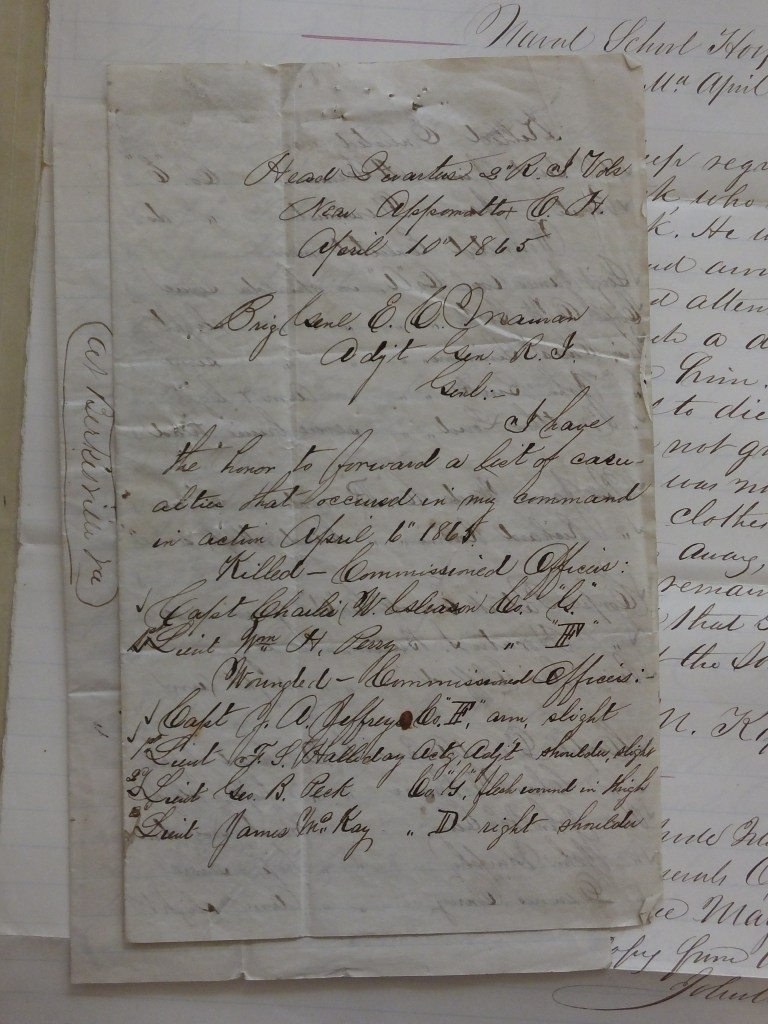 Naval School Hos
Md April
Head Quarters 2d R. I. Vols
Near Appomattox C. H.
April 10" 1865
Brig Genl. E. C. Mauran
Adjt Gen R. I.
Genl:
I have
the honor to forward a list of casu-
alties that occured in my command
in action April 6" 1865.
Killed - Commissioned Officers:
Capt Charles W. Gleason Co. "G."
1st Lieut Wm H. Perry " "F"
Wounded - Commissioned Officers:-
Capt J. A. Jeffreys Co. "F," arm, slight
1st Lieut F. S. Halliday Actg Adjt shoulder, slight
2d Lieut Geo. B. Peck Co. "G," flesh wound in thigh
Lieut James McKay " D right shoulder
at Burkesville Va
up regi
k who
k. He w
nd
atten
a d
him.
to die
not g
was no
clothes
away,
remain
that
the
M. K
Ma
Copy from
John